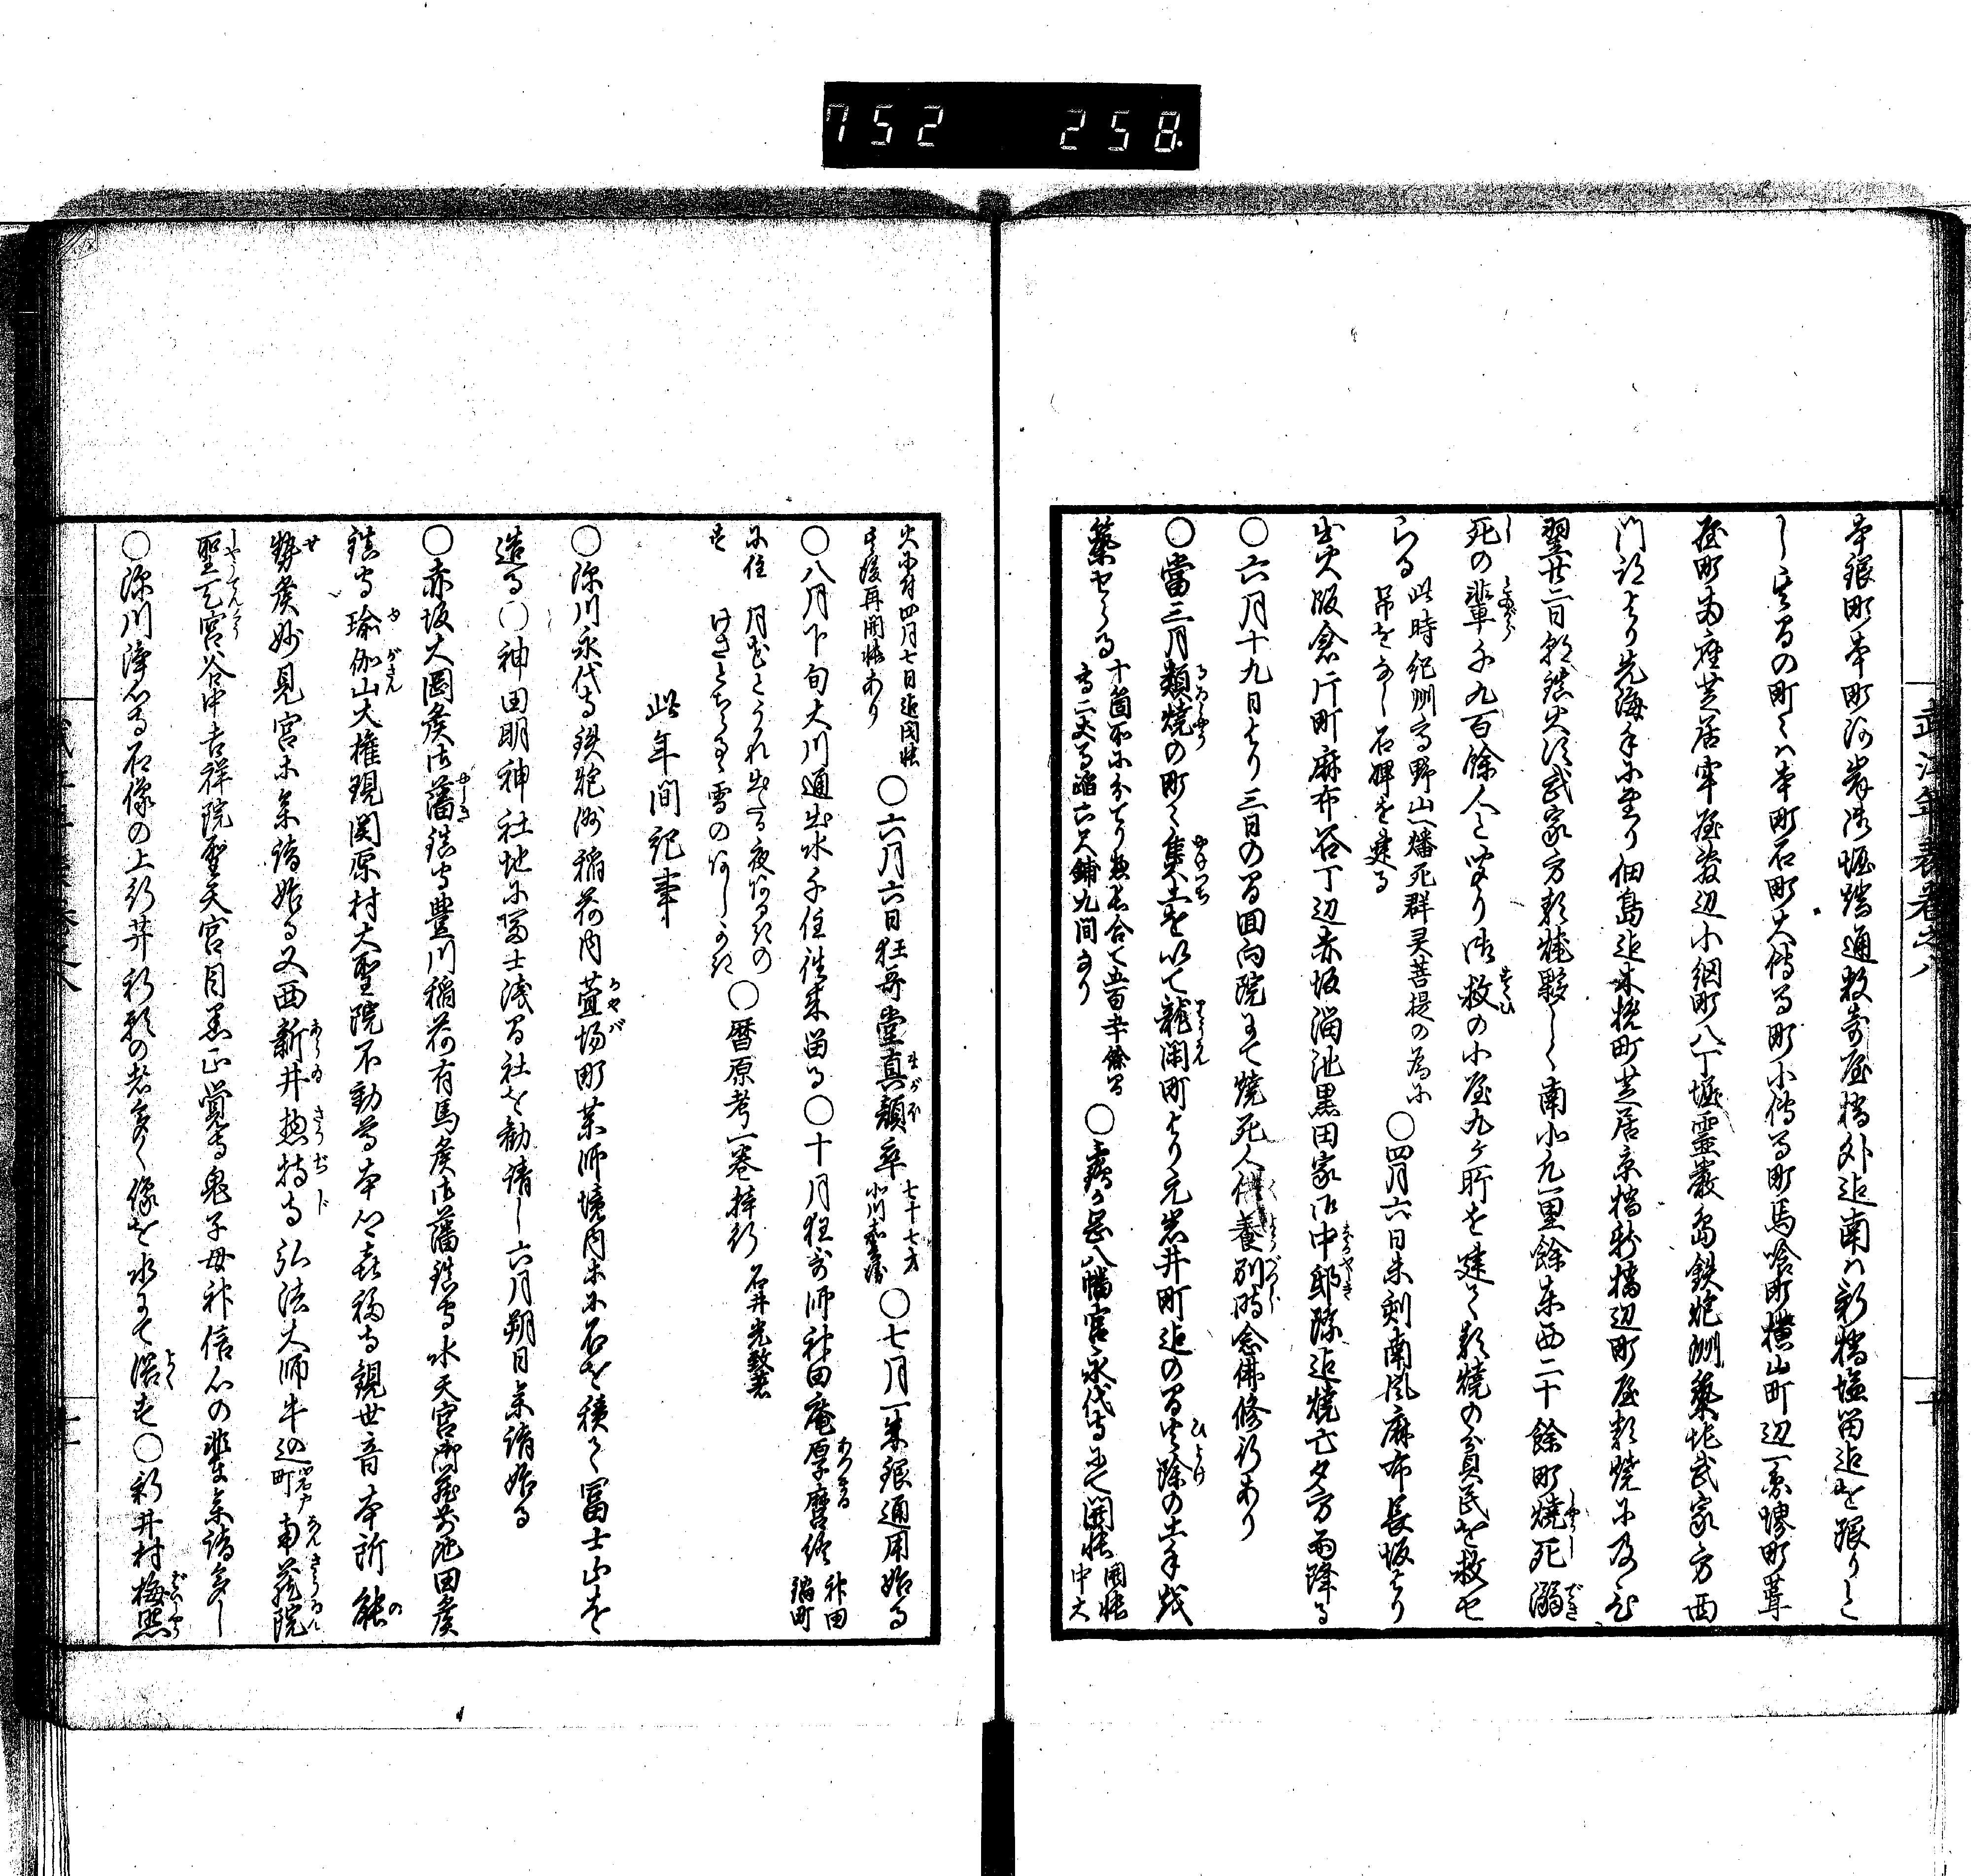 752 258
武江年表巻之八
十
本銀町本町河岸御堀端通数寄屋橋外迄南ハ新橋塩留迄を限りと
し其間の町々ハ本町石町大伝馬町小伝馬町馬喰町横山町辺一円堺町葺
屋町両座芝居牢屋敷辺小網町八丁堀霊巌島鉄炮洲築地武家方西
門跡より先海手に至り佃島迄木挽町芝居京橋新橋辺町屋類焼に及び
翌廿二日朝鎮火諸武家方類焼夥しく南北凡一里餘東西二十餘町焼死溺
死の輩千九百餘人と聞り御救の小屋九ヶ所を建て類焼の貧民を救せ
らる 此時紀州高野山へ燔死群灵菩提の為に
吊をなし石碑を建る
○四月六日未刻南風麻布長坂より
出火飯倉片町麻布谷丁辺赤坂溜池黒田家御中邸際迄焼亡夕方雨降る
○六月十九日より三日の間回向院にて焼死人供養別時念佛修行あり
○當三月類焼の町々集土を以て龍閑町より元岩井町迄の間火除の土手を
築せらる 十箇所に分てり惣長合て五百辛餘間
高二丈馬踏六尺鋪九間なり
○霧ヶ岳八幡宮永代寺にて開帳 開帳
中大
火に付四月七日迄開帳
其後再開帳あり
○六月六日狂哥堂真顔卒 七十七才
北川嘉兵衛
○七月一朱銀通用始る
○八月下旬大川通出水千住往来留る○十月狂哥師神田庵厚麿終 神田
鍋町
に住
す
月花とうかれ出たる夜あるきの
けさとぢらるゝ雪のあしかき
○暦原考一巻梓行 石井光致著
此年間記事
○深川永代寺鉄炮洲稲荷内萱場町薬師境内等に石を積て富士山を
造る○神田明神社地に富士浅間社を勧請し六月朔日参詣始る
○赤坂大岡侯御藩鎮守豊川稲荷有馬侯御藩鎮守水天宮御蔵前池田侯
鎮守瑜伽山大権現関原村大聖院不動尊本所喜福寺観世音本所能
勢侯妙見宮等参詣始る又西新井惣持寺弘法大師牛込岩戸町南蔵院
聖天宮谷中吉祥院聖天宮目黒正覚寺鬼子母神信心の輩参詣多し
○深川浄心寺石像の上行井祈願の者多く像を水にて浴す○新井村梅照